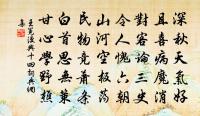 深秋天氣好
且喜病魔消
對客論三史
令人愧六朝
山河空板蕩
民物竟蕭條
白首思無策
甘心學野樵
王冕漫興十四詞典網
集